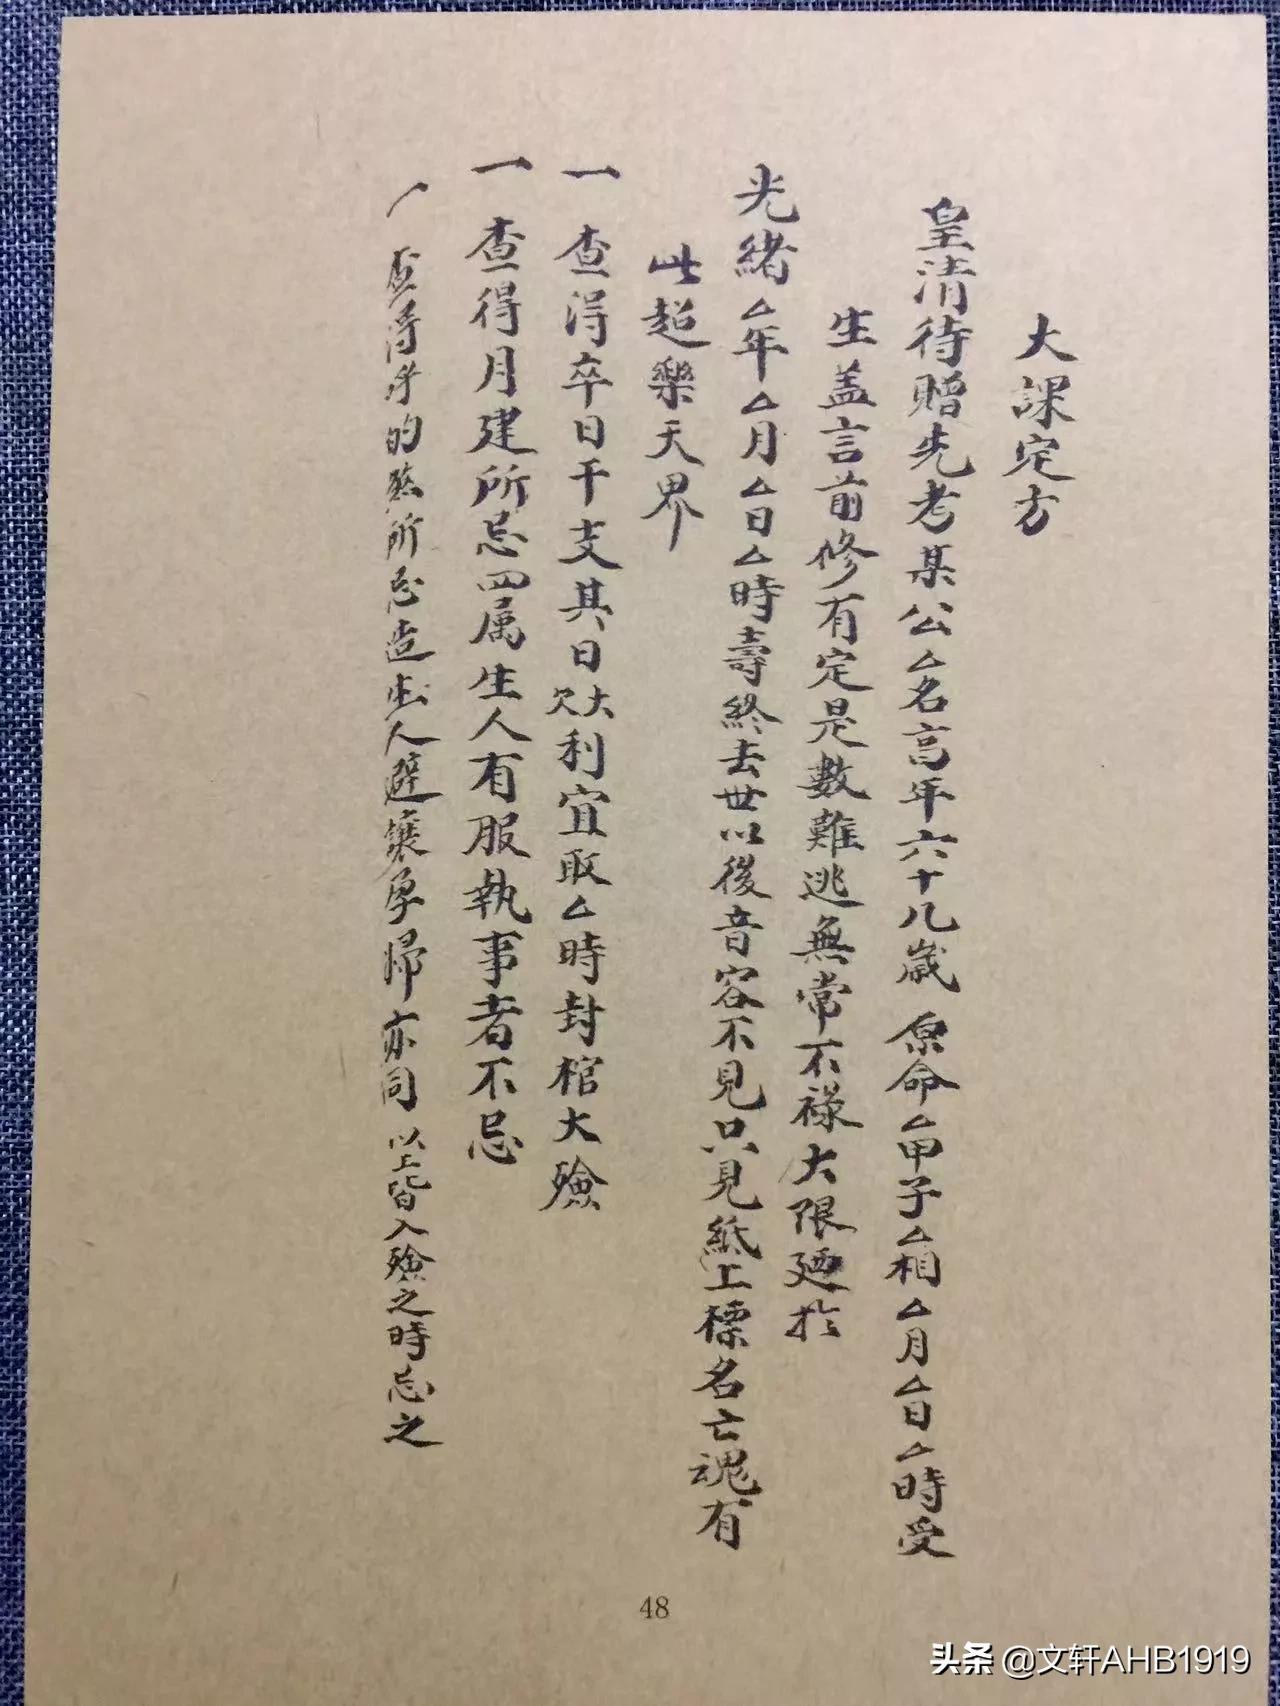 大課定方
皇清待贈先考某公厶名高年六十几歲 原命厶甲子厶相厶月厶日厶時受
生盖言前修有定是數難逃無常不祿大限廹於
光緒厶年厶月厶日厶時壽終去世以後音容不見只見紙上標名亡魂有
此超樂天界
一 查得卒日干支其日大欠利宜取厶時封棺大殮
一 查得月建所忌四属生人有服執事者不忌
一 查得的煞所忌造生人避穰孕婦亦同 以上皆入殮之時忌之
48
头条 @文轩AHB1919